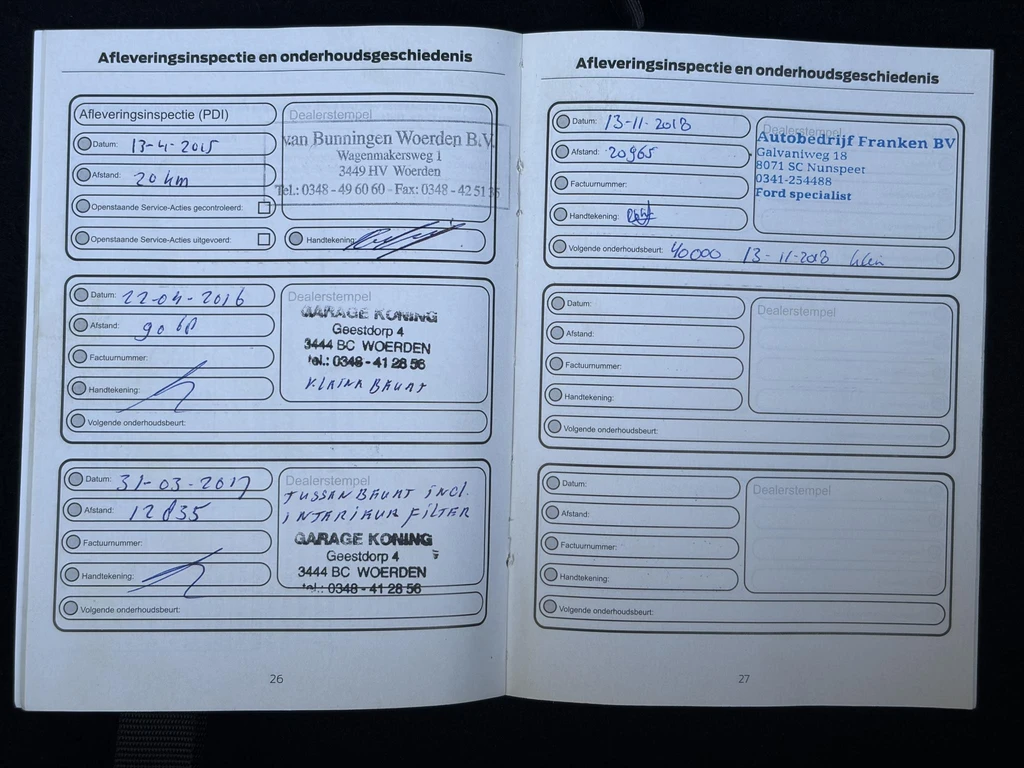 Afleveringsinspectie en onderhoudsgeschiedenis
Afleveringsinspectie (PDI)
Datum: 13-4-2015
Afstand: 20 km
Openstaande Service-Acties gecontroleerd:
Openstaande Service-Acties uitgevoerd:
Dealerstempel
van Bunningen Woerden B.V.
Wagenmakersweg 1
3449 HV Woerden
Tel.: 0348 - 49 60 60 - Fax: 0348 - 42 51
Handtekening:
Datum: 22-04-2016
Afstand: 9060
Factuurnummer:
Handtekening:
Volgende onderhoudsbeurt:
Dealerstempel
GARAGE KONING
Geestdorp 4
3444 BC WOERDEN
tel.: 0348 - 41 28 56
KLEINE BEURT
Datum: 31-03-2017
Afstand: 12835
Factuurnummer:
Handtekening:
Volgende onderhoudsbeurt:
Dealerstempel
TUSSEN BEURT incl.
INTERIEUR FILTER
GARAGE KONING
Geestdorp 4
3444 BC WOERDEN
tel.: 0348 - 41 28 56
26
Afleveringsinspectie en onderhoudsgeschiedenis
Datum: 13-11-2018
Afstand: 20965
Factuurnummer:
Handtekening:
Volgende onderhoudsbeurt: 40000 13-11-2018 klein
Dealerstempel
Autobedrijf Franken BV
Galvaniweg 18
8071 SC Nunspeet
0341-254488
Ford specialist
Datum:
Afstand:
Factuurnummer:
Handtekening:
Volgende onderhoudsbeurt:
Dealerstempel
Datum:
Afstand:
Factuurnummer:
Handtekening:
Volgende onderhoudsbeurt:
Dealerstempel
27